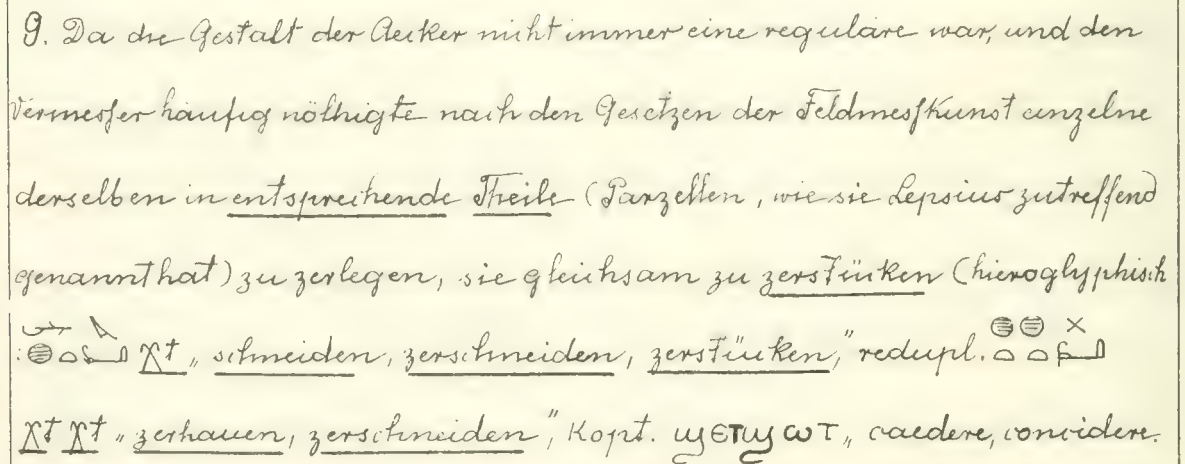 9. Da die Gestalt der Aecker nicht immer eine reguläre war, und den
Vermesser häufig nöthigte nach den Gesetzen der Feldmesskunst einzelne
derselben in entsprechende Theile (Parzellen, wie sie Lepsius zutreffend
genannt hat) zu zerlegen, sie gleichsam zu zerstücken (hieroglyphisch
: χt „schneiden, zerschneiden, zerstücken," redupl.
χt χt „zerhauen, zerschneiden", Kopt. ϣⲉⲧϣⲱⲧ „caedere, concidere.